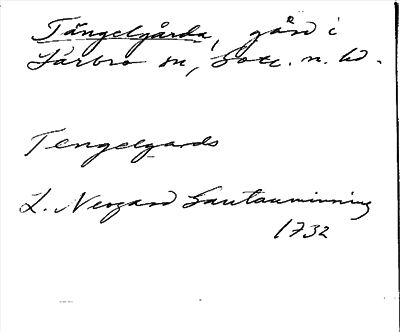 Tängelgårda, gård i
Lärbro sn, Gotl. n. hd.
Tengelgards
L. Neogard Gautauminning
1732